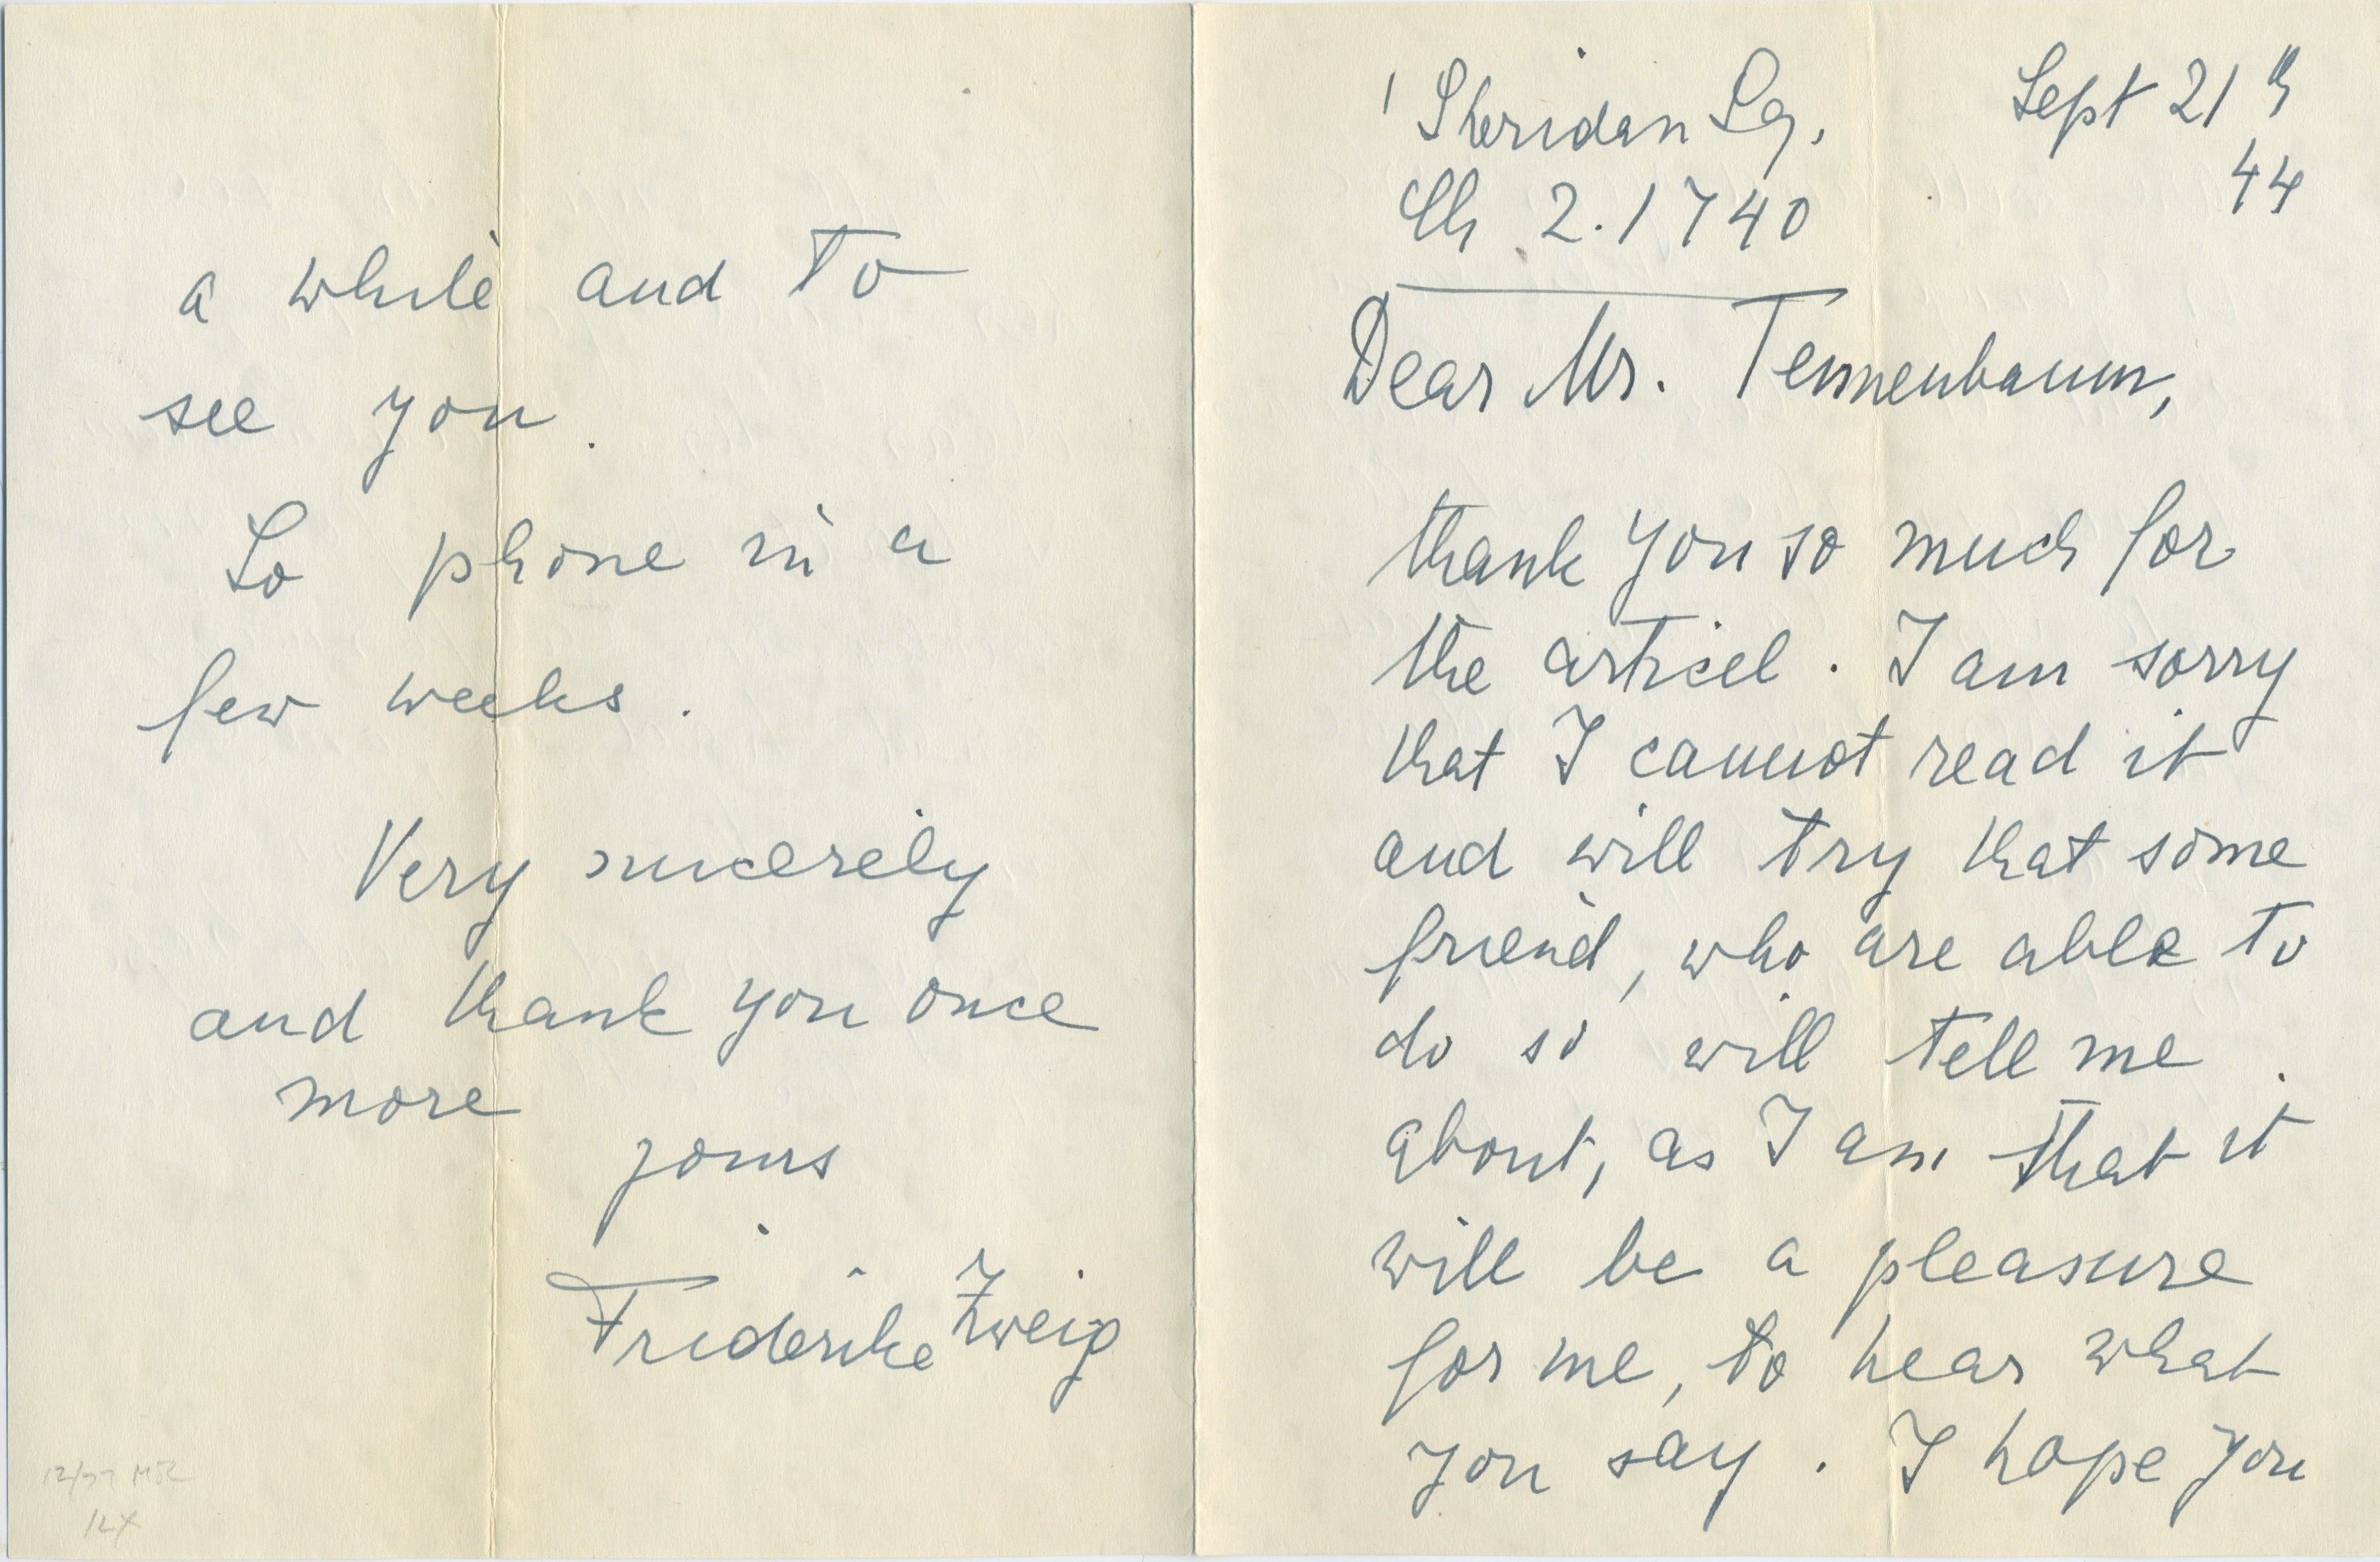 1 Sheridan Sq.
Sept 21th
44
Ch 2.1740
Dear Mr. Tennenbaum,
thank you so much for
the articel. I am sorry
that I cannot read it
and will try that some
friend, who are able to
do so will tell me
about, as I am that it
will be a pleasure
for me, to hear what
you say. I hope you
a while and to
see you.
So phone in a
few weeks.
Very sincerely
and thank you once
more
yours
Friderike Zweig